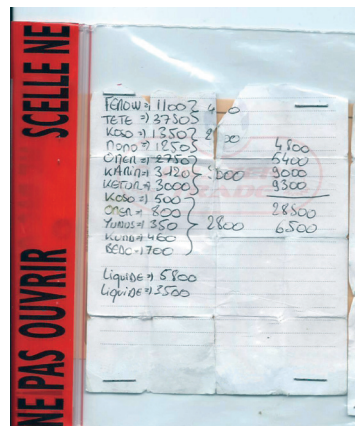 NE PAS OUVRIR SCELLE NE
FEROW => 1100
TETE => 3750
Koso => 1350
nono => 1250
OMER => 2750
KARIM => 3120
KETUR => 3000
Koso => 500
OMER => 800
YUNUS => 350
KUNA => 460
BEDO => 1700
2800
Liquide => 5800
Liquide => 3500
4800
5400
9000
9300
28500
6500